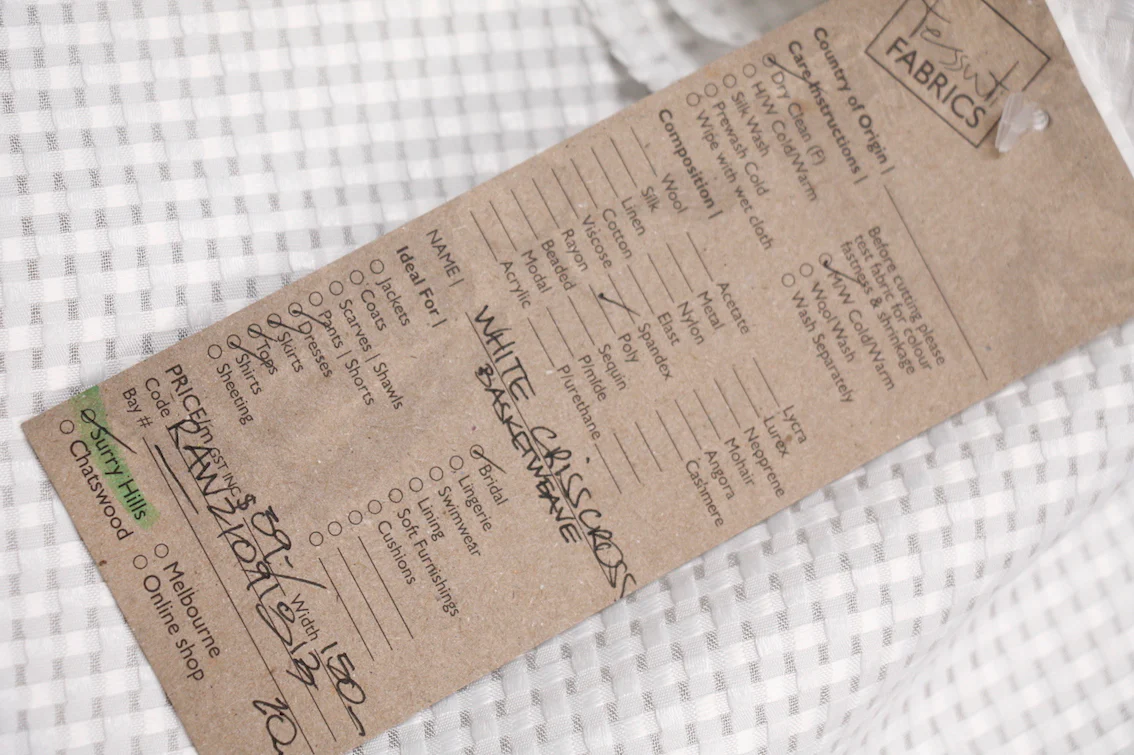 Tessuti
FABRICS
Country of Origin |
Care Instructions |
Dry Clean (F)
H/W Cold/Warm
Silk Wash
Prewash Cold
Wipe with wet cloth
Before cutting please
test fabric for colour
fastness & shrinkage
H/W Cold/Warm
Wool Wash
Wash Separately
Composition |
Wool
Silk
Linen
Cotton
Viscose
Rayon
Beaded
Modal
Acrylic
Acetate
Metal
Nylon
Elast
Spandex
Poly
Sequin
P/mide
P/urethane
Lycra
Lurex
Neoprene
Mohair
Angora
Cashmere
NAME |
WHITE CRISSCROSS
BASKETWEAVE
Ideal For |
Jackets
Coats
Scarves | Shawls
Pants | Shorts
Dresses
Skirts
Tops
Shirts
Sheeting
Bridal
Lingerie
Swimwear
Lining
Soft Furnishings
Cushions
PRICE/m GST IN- $ 39-/ Width 150
Code
Bay #
Surry Hills
Chatswood
Melbourne
Online shop